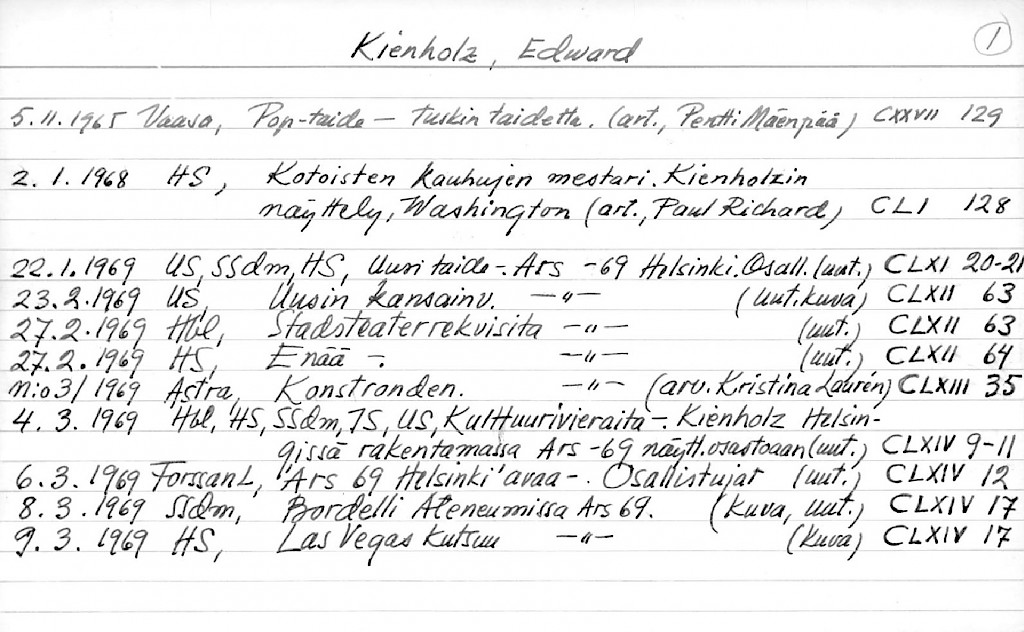 1
Kienholz, Edward
5.11.1965 Vaasa, Pop-taide – tuskin taidetta. (art., Pentti Mäenpää) CXXVII 129
2.1.1968 HS, Kotoisten kauhujen mestari. Kienholzin
näyttely, Washington (art., Paul Richard) CLI 128
22.1.1969 US, SSdm, HS, Uusi taide-. Ars -69 Helsinki. Osall. (uut.) CLXI 20-21
23.2.1969 US, Uusin kansainv. –"– (uut. kuva) CLXII 63
27.2.1969 Hbl, Stadsteaterrekvisita –"– (uut.) CLXII 63
27.2.1969 HS, Enää -. –"– (uut.) CLXII 64
n:o 3/1969 Astra, Konstronden. –"– (arv. Kristina Laurén) CLXIII 35
4.3.1969 Hbl, HS, SSdm, TS, US, Kulttuurivieraita -. Kienholz Helsin-
gissä rakentamassa Ars -69 näytt. osastoaan (uut.) CLXIV 9-11
6.3.1969 Forssan L, 'Ars 69 Helsinki' avaa -. Osallistujat (uut.) CLXIV 12
8.3.1969 SSdm, Bordelli Ateneumissa Ars 69. (kuva, uut.) CLXIV 17
9.3.1969 HS, Las Vegas kutsuu –"– (kuva) CLXIV 17